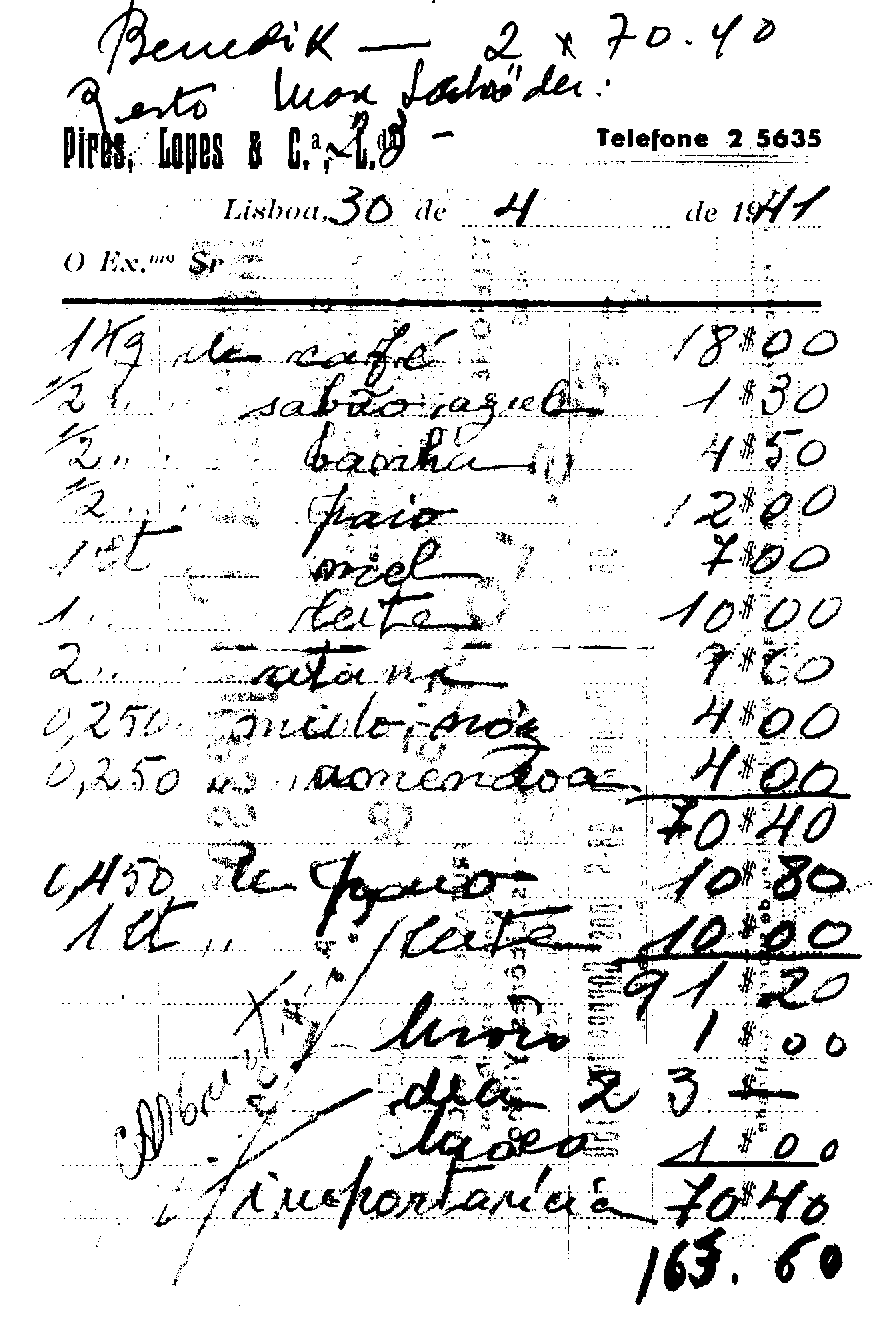 Benedik — 2 x 70.40
Resto Max Schöder:
Pires, Lopes & C.ª, L.da Telefone 2 5635
Lisboa, 30 de 4 de 1941
O Ex.mo Sr.
1 Kg de café 18$00
1/2 " sabão azul 1$30
1/2 " banha 4$50
1/2 " paio 12$00
1 lt mel 7$00
1 " leite 10$00
2 " 9$60
0,250 miolo nóz 4$00
0,250 " amendoa 4$00
70$40
0,450 de paio 10$80
1 lt " leite 10$00
91$20
1$00
dia 2 3$—
1$00
importancia 70$40
163.60